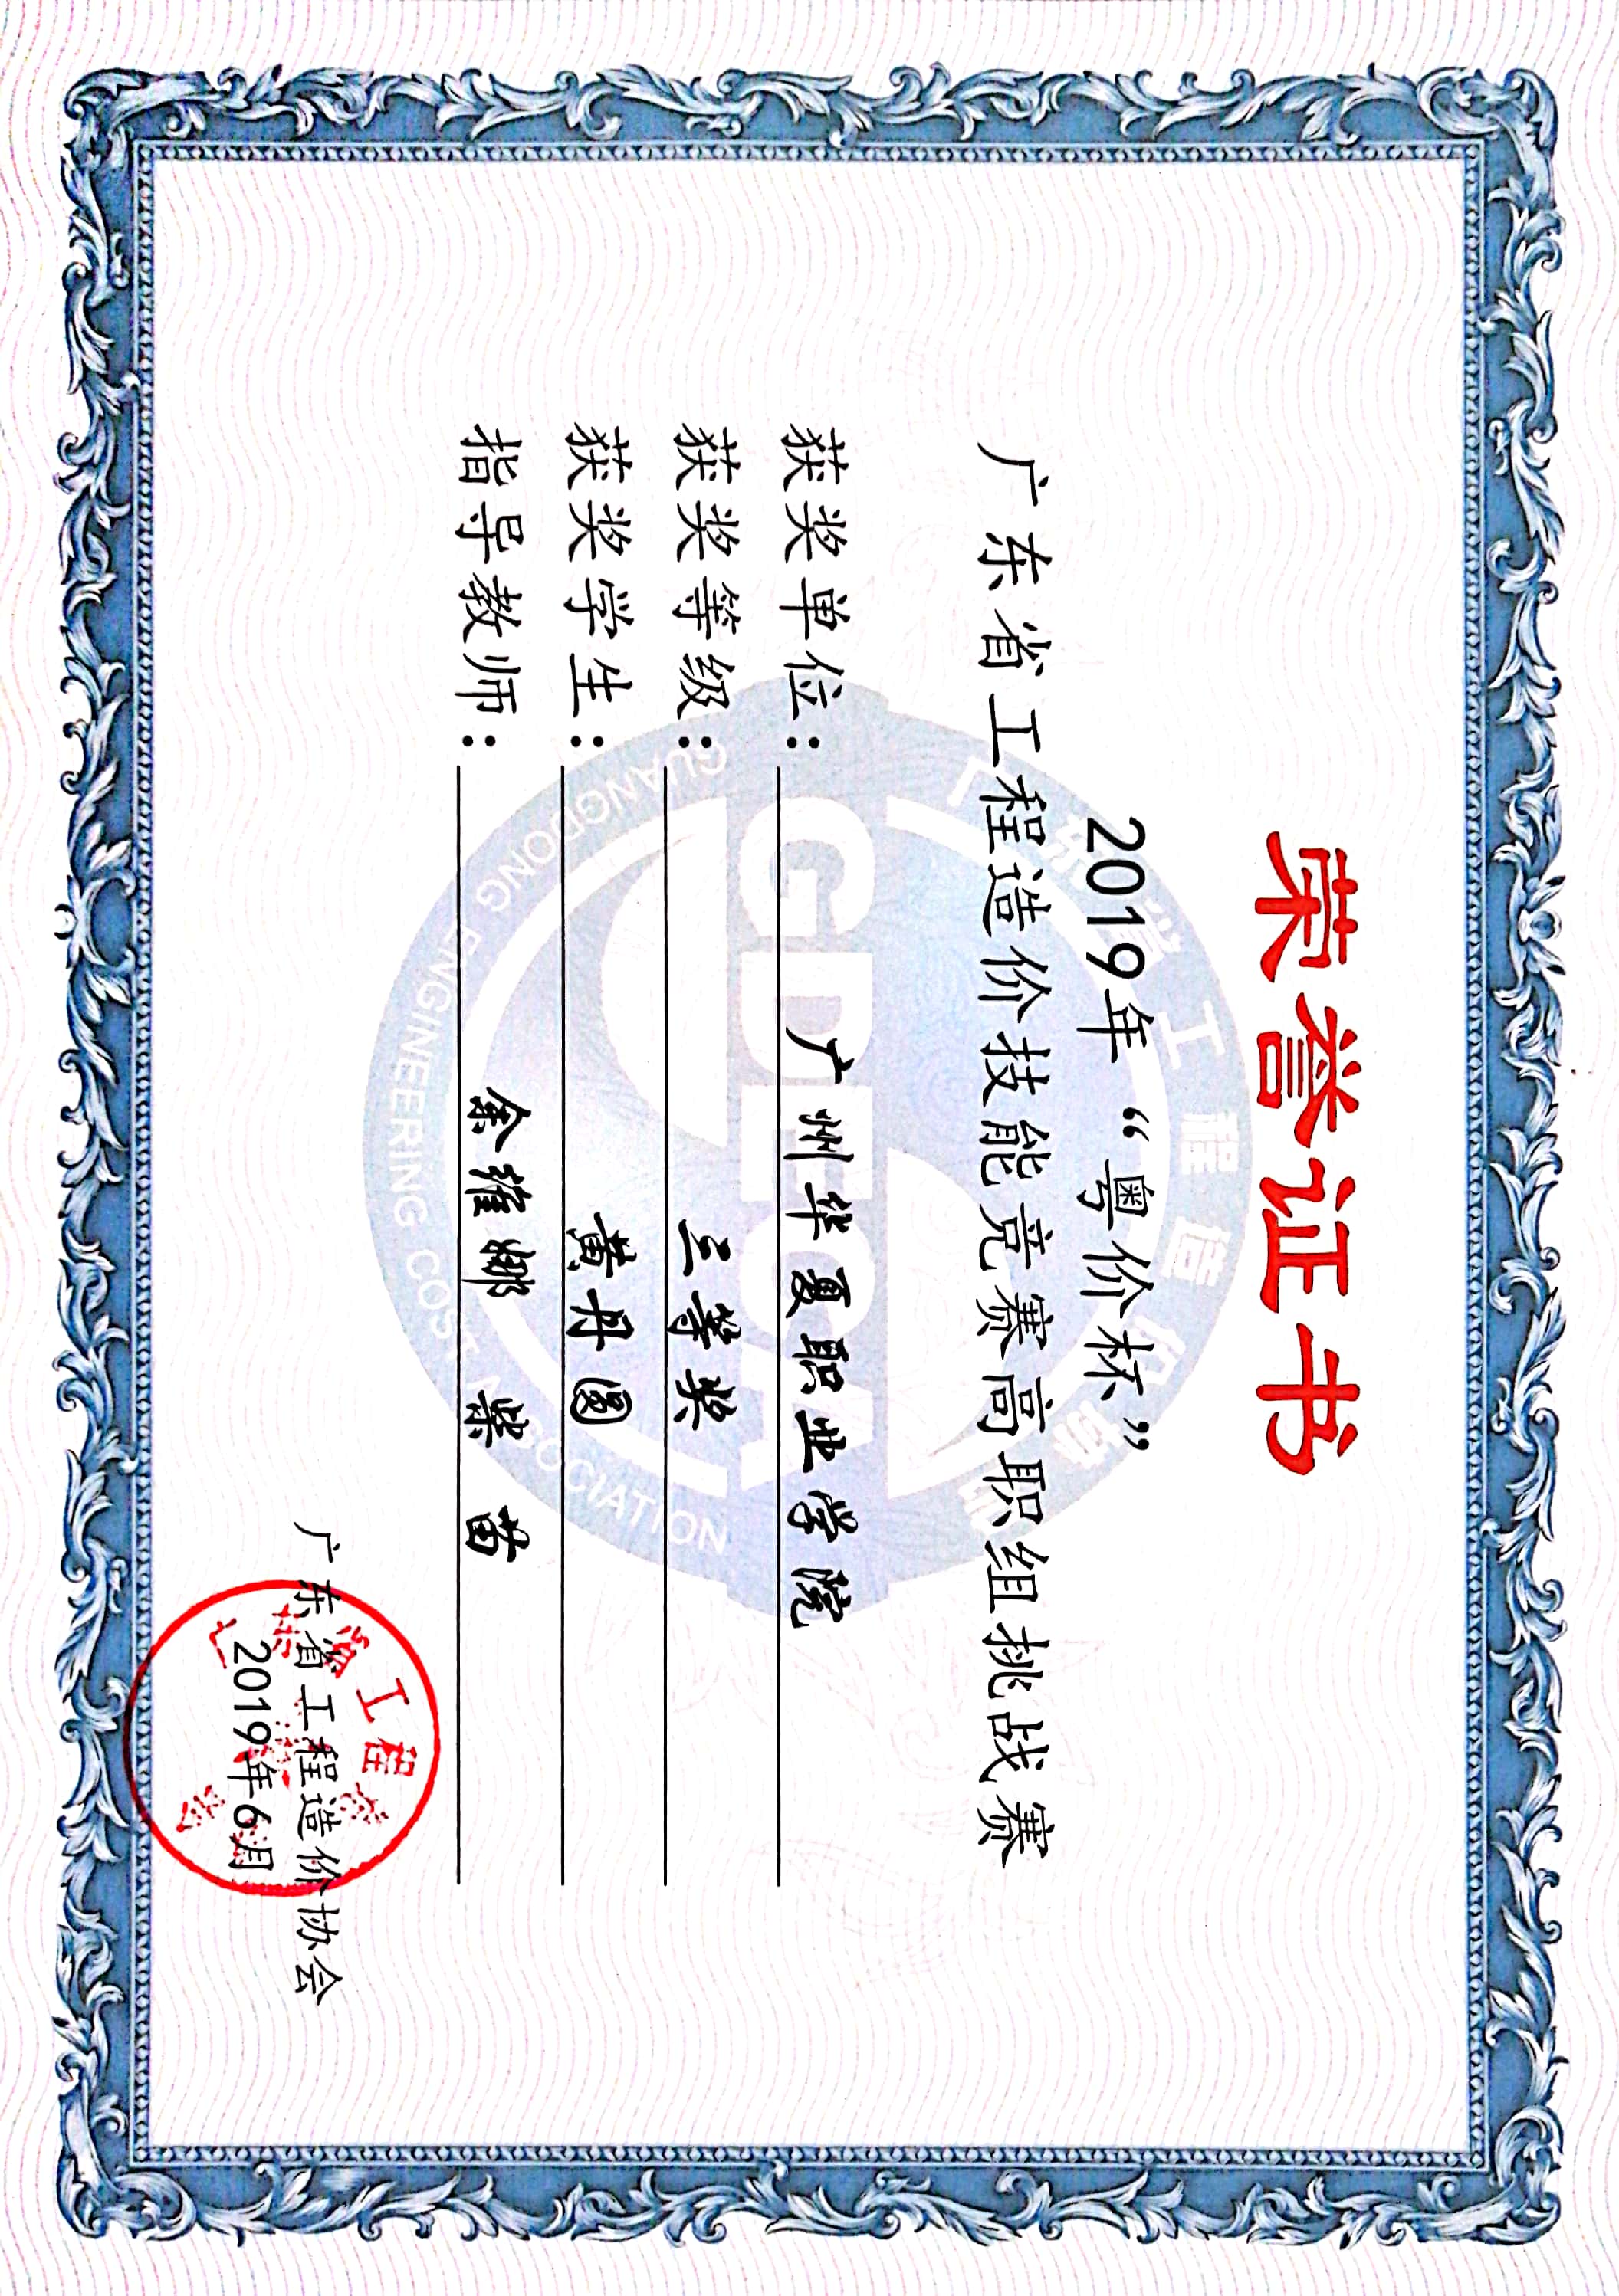 荣誉证书
2019年“粤价杯”
广东省工程造价技能竞赛高职组挑战赛
获奖单位：广州华夏职业学院
获奖等级：三等奖
获奖学生：黄丹圆
指导教师：余维娜 柴苗
广东省工程造价协会
2019年6月
GDECA
GUANGDONG ENGINEERING COST ASSOCIATION